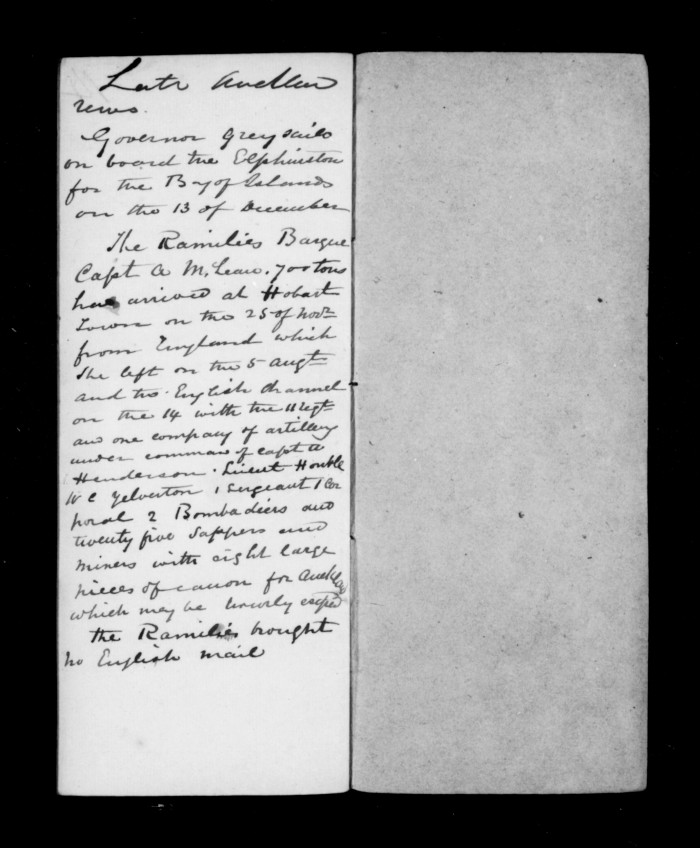 Late Aucklan
news.
Governor Grey sails
on board the Elphinston
for the Bay of Islands
on the 13 of December
The Ramilies Barque
Capt A McLean. 700 tons
has arrived at Hobart
Town on the 25 of Novr
from England which
she left on the 5 augt
and the English Channel
on the 14 with the 11 regt
and one company of artillery
under command of capt A
Henderson. Lieut Honble
W C Yelverton 1 Sergeant 1 Cor
poral 2 Bombadiers and
twenty five Sappers and
miners with eight large
pieces of canon for Auckland
which may be hourly expd
the Ramilies brought
no English mail